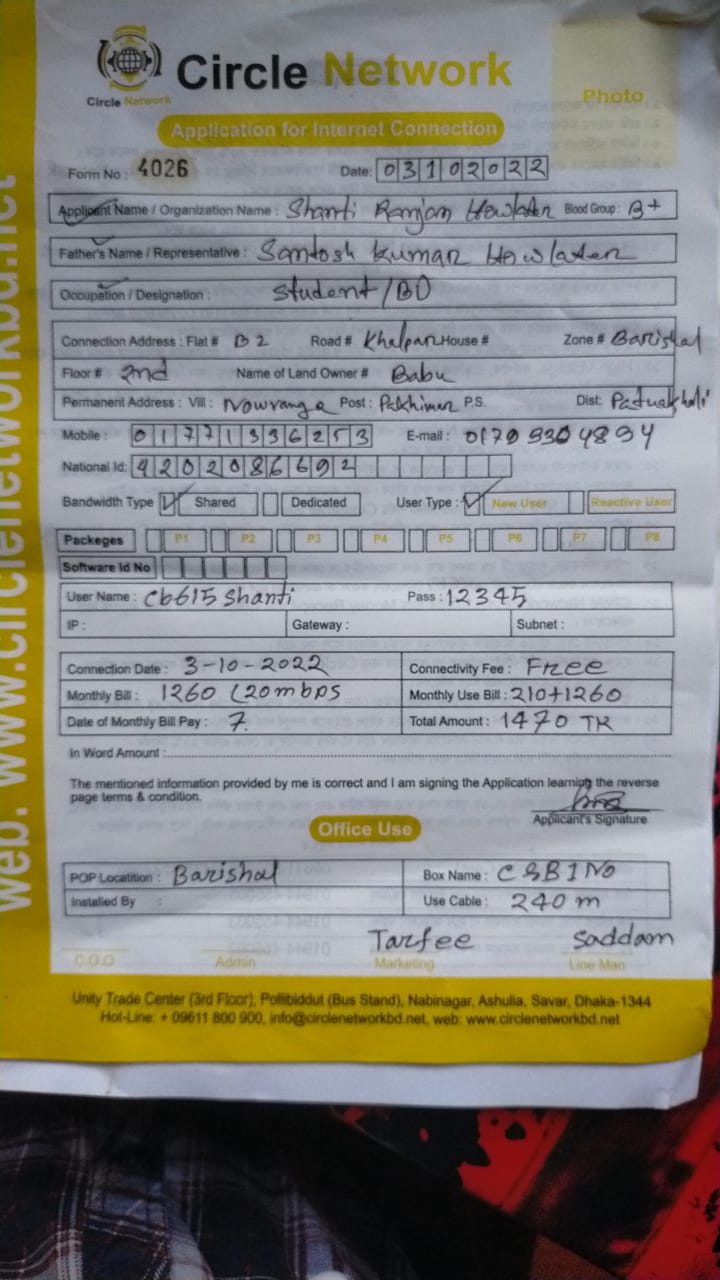 Circle Network
Circle Network
Photo
Application for Internet Connection
Form No : 4026 Date: 03102022
Applicant Name / Organization Name : Shanti Ranjan Howlader Blood Group : B+
Father's Name / Representative : Santosh Kumar Howlader
Occupation / Designation : Student/BD
Connection Address : Flat # B2 Road # Khalpar House # Zone # Barishal
Floor # 2nd Name of Land Owner # Babu
Permanent Address : Vill : Nowranga Post : Pakhimar P.S. Dist: Patuakhali
Mobile : 01771336253 E-mail : 01799304894
National Id: 4202086692
Bandwidth Type Shared Dedicated User Type : New User Reactive User
Packeges P1 P2 P3 P4 P5 P6 P7 P8
Software Id No
User Name : cb615 shanti Pass : 12345
IP : Gateway : Subnet :
Connection Date : 3-10-2022 Connectivity Fee : Free
Monthly Bill : 1260 (20mbps Monthly Use Bill : 210+1260
Date of Monthly Bill Pay : 7. Total Amount : 1470 TK
In Word Amount :
The mentioned information provided by me is correct and I am signing the Application learning the reverse
page terms & condition.
Applicant's Signature
Office Use
POP Locatition : Barishal Box Name : CSB1No
Installed By : Use Cable : 240 m
Tarfee Saddam
C.O.O Admin Marketing Line Man
Unity Trade Center (3rd Floor), Pollibiddut (Bus Stand), Nabinagar, Ashulia, Savar, Dhaka-1344
Hot-Line: + 09611 800 900, info@circlenetworkbd.net, web: www.circlenetworkbd.net
web: www.circlenetworkbd.net